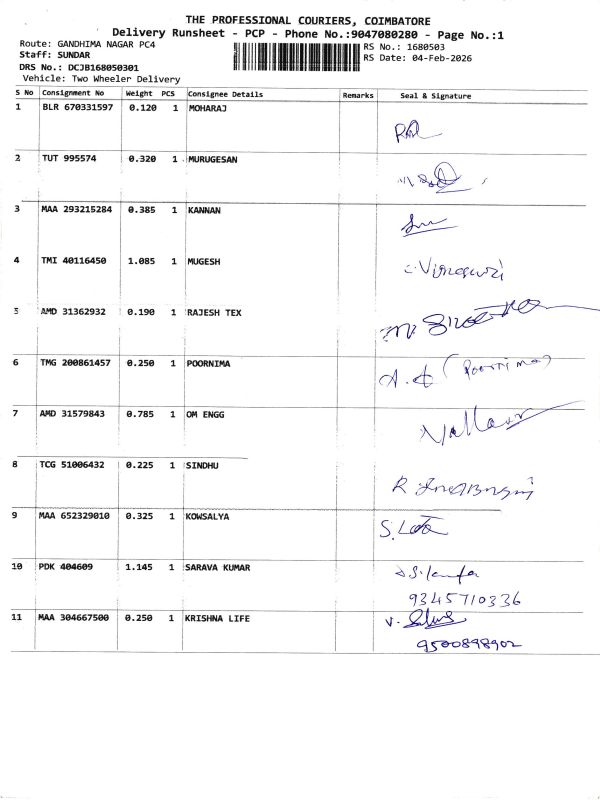 THE PROFESSIONAL COURIERS, COIMBATORE
Delivery Runsheet - PCP - Phone No.:9047080280 - Page No.:1
Route: GANDHIMA NAGAR PC4
RS No.: 1680503
Staff: SUNDAR
RS Date: 04-Feb-2026
DRS No.: DCJB168050301
Vehicle: Two Wheeler Delivery
S No Consignment No Weight PCS Consignee Details Remarks Seal & Signature
1 BLR 670331597 0.120 1 MOHARAJ
2 TUT 995574 0.320 1 MURUGESAN
3 MAA 293215284 0.385 1 KANNAN
4 TMI 40116450 1.085 1 MUGESH
5 AMD 31362932 0.190 1 RAJESH TEX
6 TMG 200861457 0.250 1 POORNIMA
(Poornima)
7 AMD 31579843 0.785 1 OM ENGG
8 TCG 51006432 0.225 1 SINDHU
9 MAA 652329010 0.325 1 KOWSALYA
S. Lata
10 PDK 404609 1.145 1 SARAVA KUMAR
9345710336
11 MAA 304667500 0.250 1 KRISHNA LIFE
9500898902